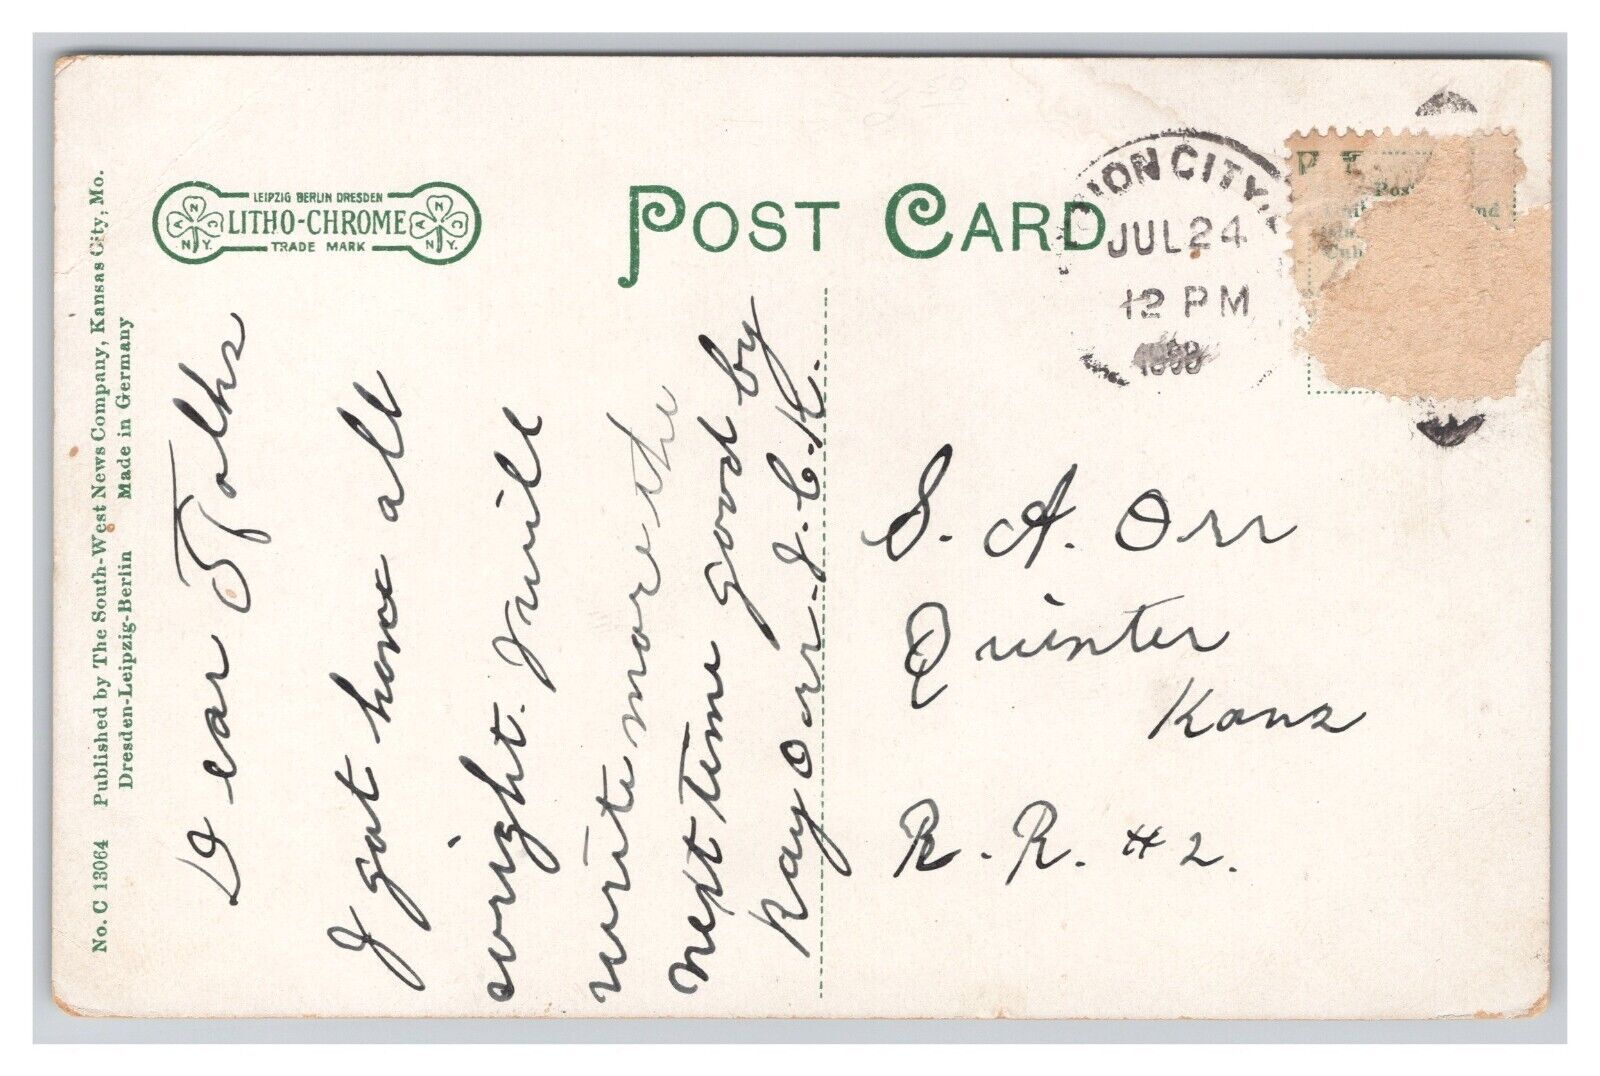 No. C 13064 Published by The South-West News Company, Kansas City, Mo.
Dresden-Leipzig-Berlin Made in Germany
LEIPZIG BERLIN DRESDEN
LITHO-CHROME
TRADE MARK
A N C N.Y.
A N C N.Y.
POST CARD
CITY,
JUL 24
12 PM
Dear Folks
I got home all
wright. I will
write more the
next time good by
Ray Orr. J. C. K.
S. A. Orr
Quinter
Kans
R. R. #2.